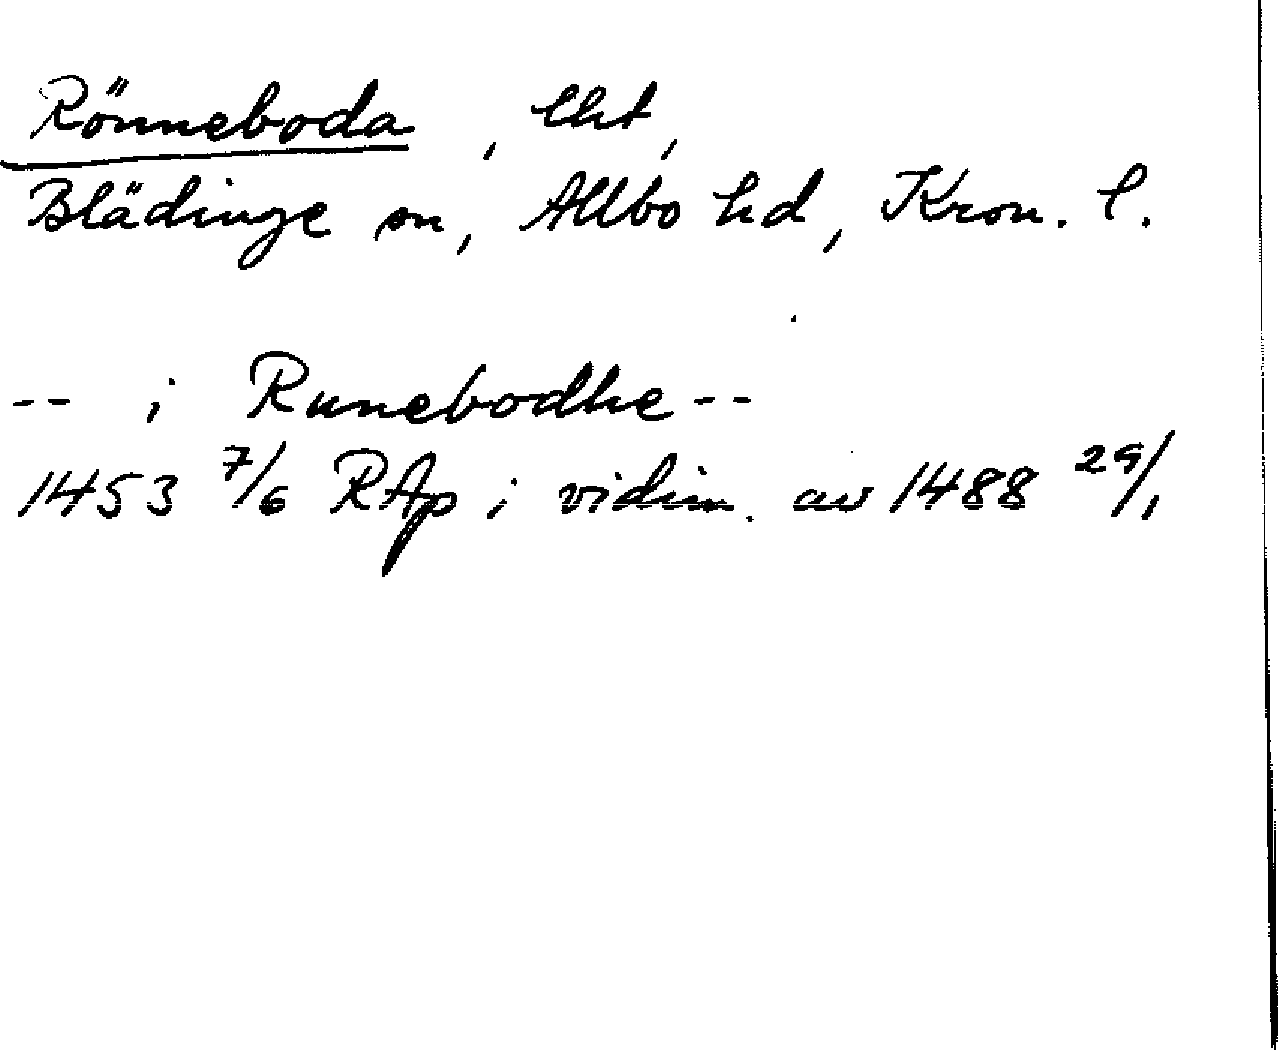 Rönneboda, lht,
Blädinge sn, Allbo hd, Kron. l.
-- i Runebodhe --
1453 7/6 RAp i vidim. av 1488 29/1